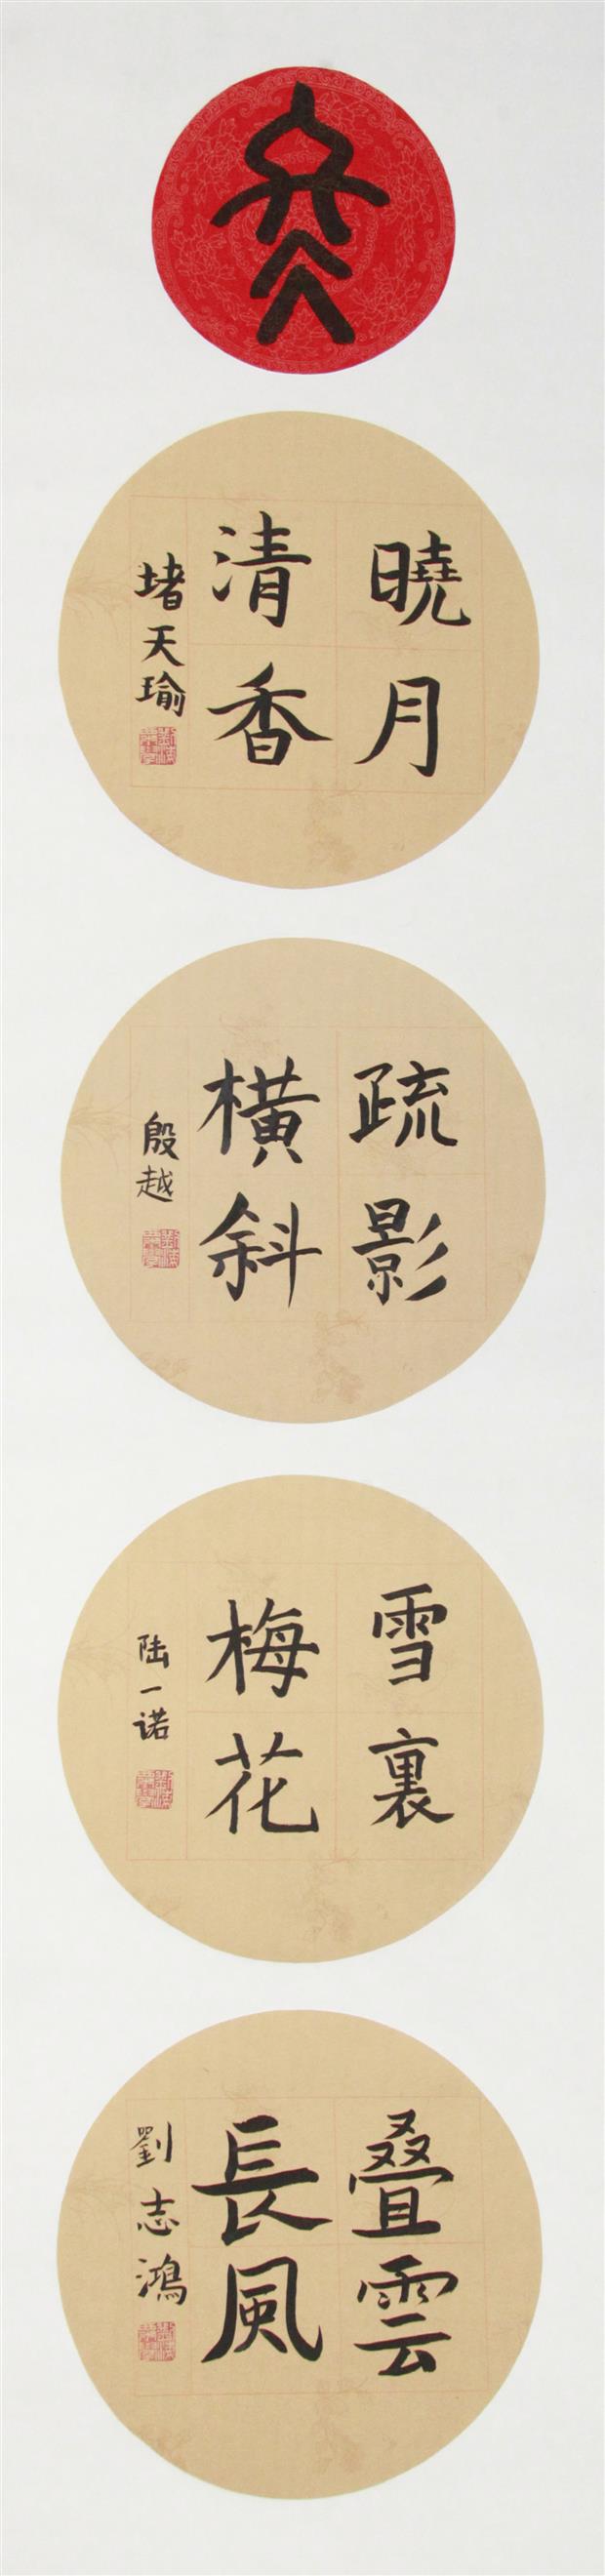 冬
曉月
清香
堵天瑜
疏影
横斜
殷越
雪裏
梅花
陆一诺
叠雲
長風
劉志鴻